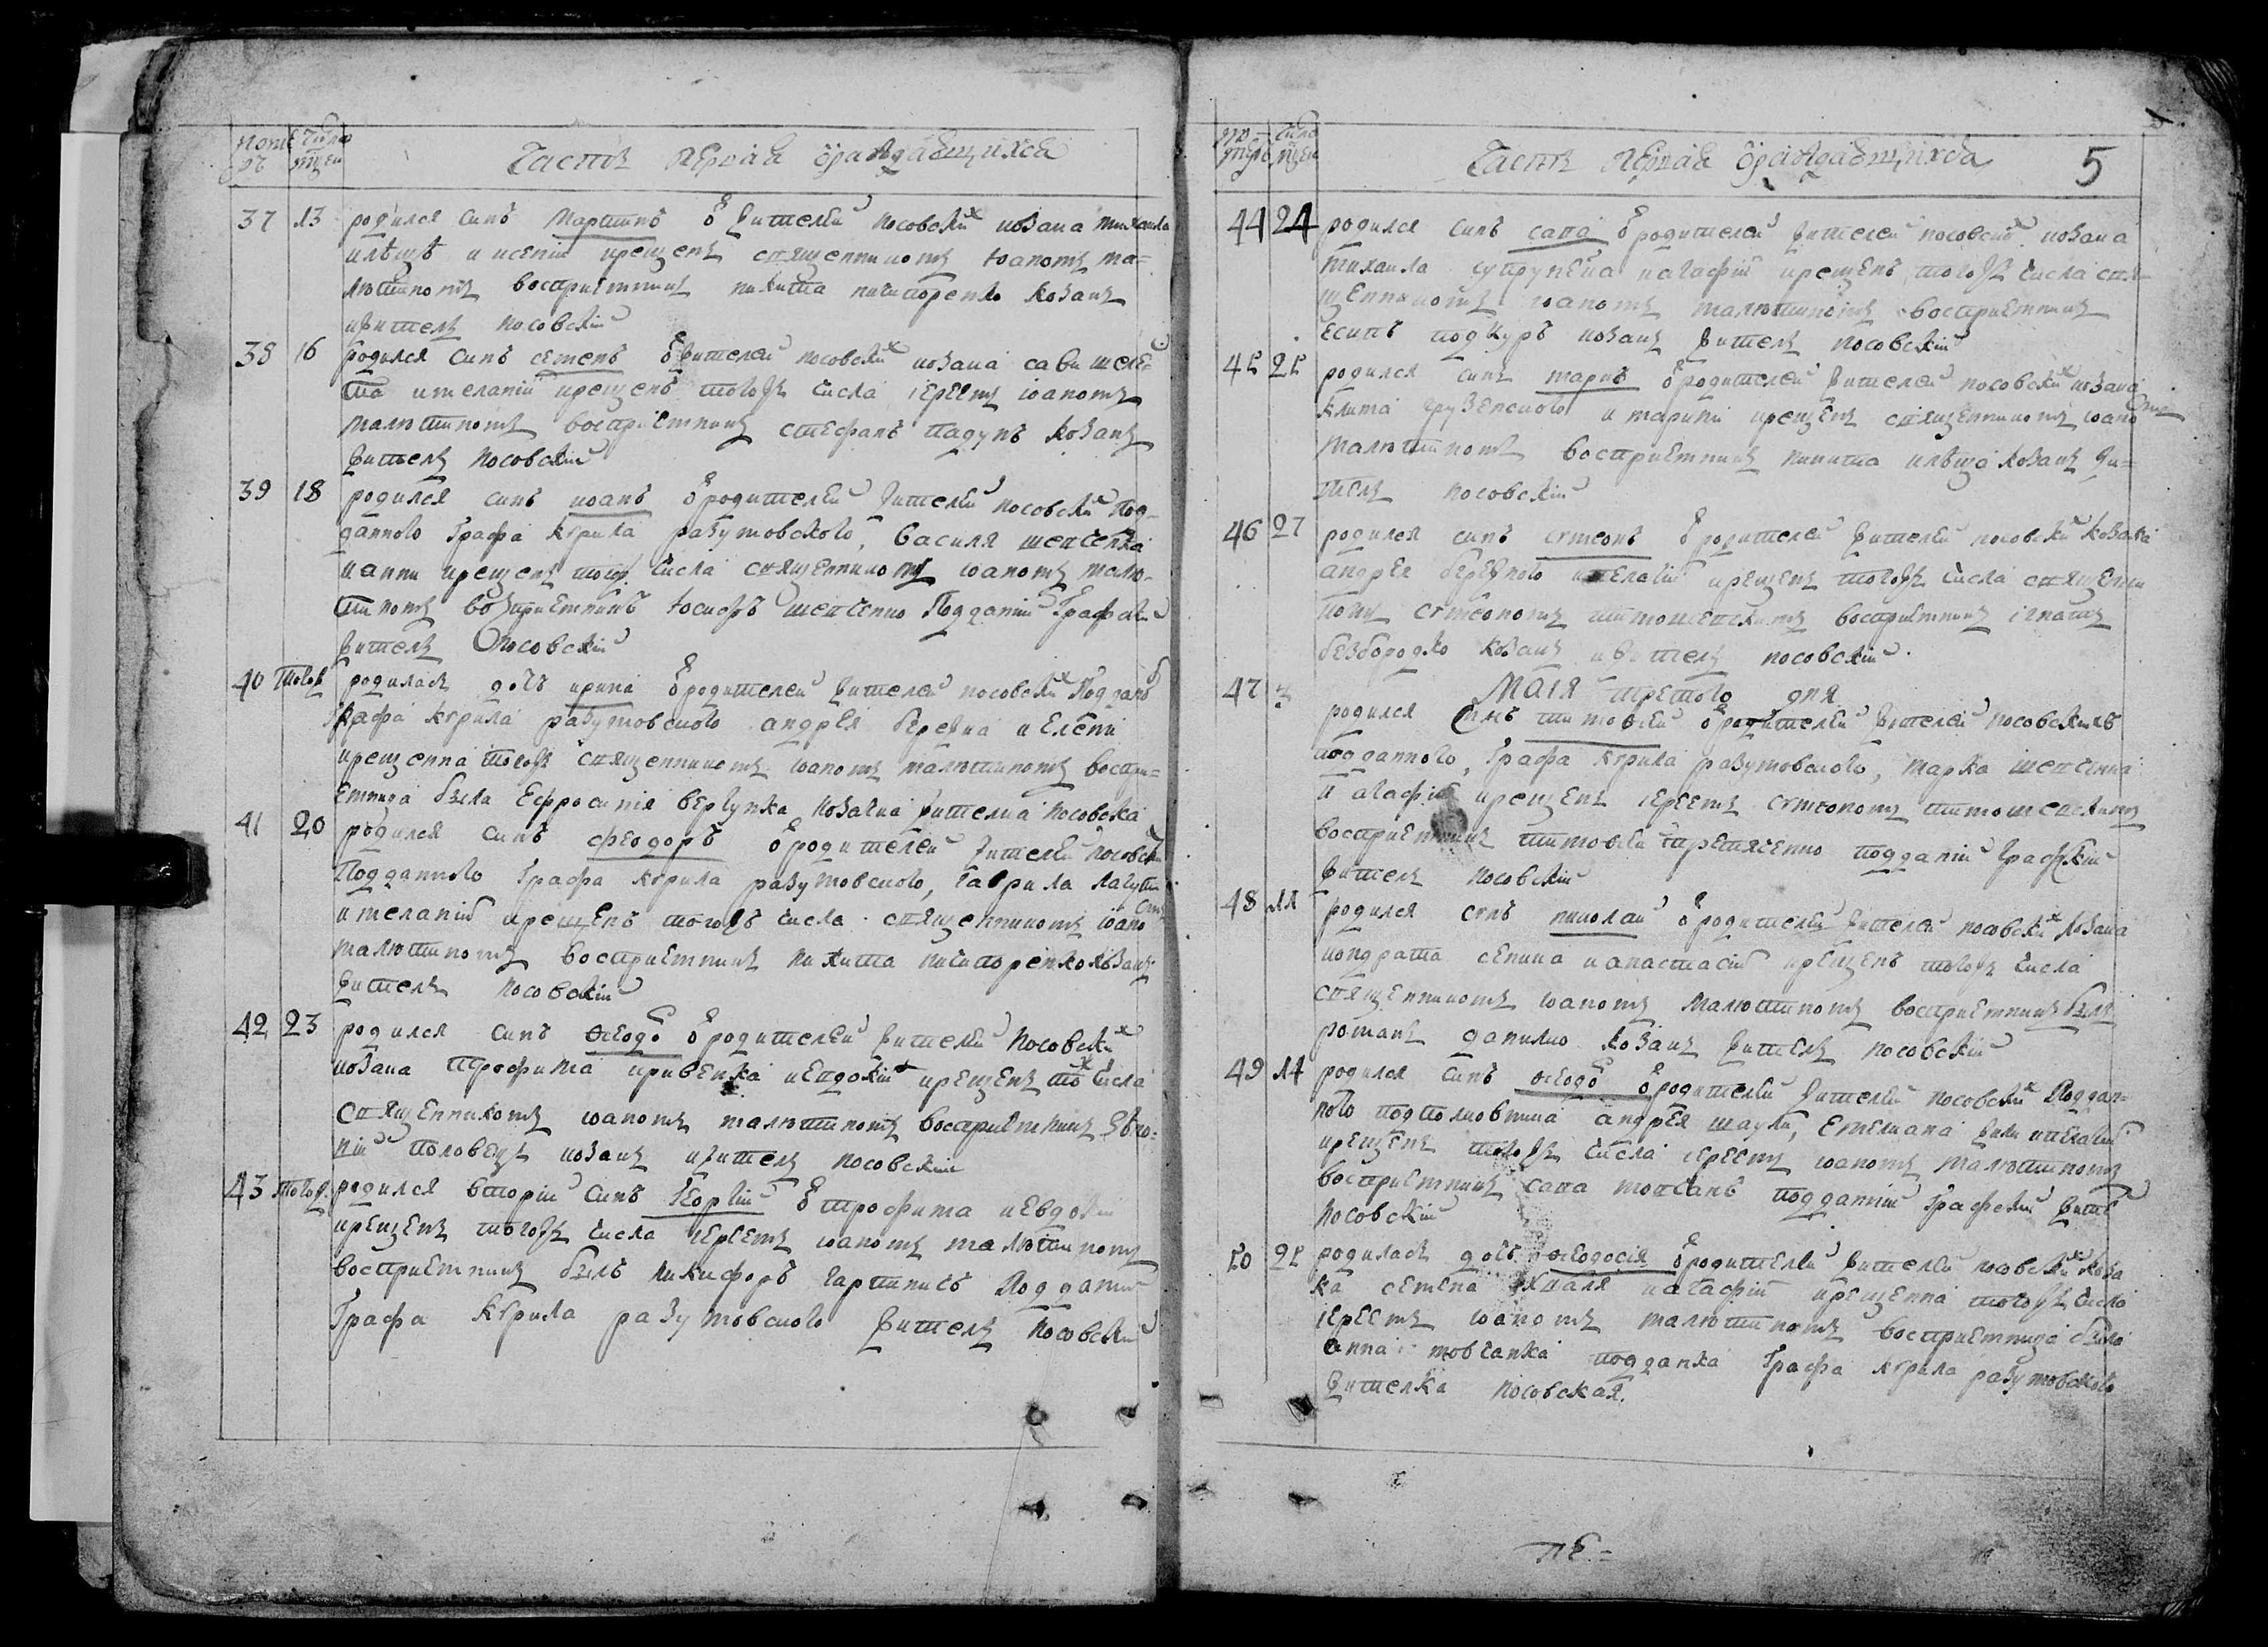 Номе числ
ръ мцеи
Часть первая ѡраждающихся
37 13 родился синъ мартинъ ѿ жителей носовских козака михаила
илѣща и ксении крещенъ священникомъ иоаномъ ма=
лютиномъ восприемникъ никита ничипоренко козакъ
и житель носовский
38 16 родился синъ семенъ ѿ жителей носовских козака сави шеле
ста и мелании крещенъ тогожъ числа иереемъ иоаномъ
малютиномъ восприемникъ стефанъ падунъ козакъ
житель носовский
39 18 родился синъ иоанъ ѿ родителей жителей носовских под
данного графа кѵрила разумовского, василя шевченка
и анни крещенъ тогож числа священникомъ иоаномъ малю-
тиномъ возприемникъ иосифъ шевченко подданий графский
житель носовский
40 тогож родилась дочь ирина ѿ родителей жителей носовских поддан
графа кѵрила разумовского андрея бережна и елени
крещенна тогожъ священникомъ иоаномъ малютиномъ воспри=
емница была ефросиния вергунка козачка жителка носовска
41 20 родился синъ феодоръ ѿ родителей жителей носовских
подданного графа кѵрила разумовского, гаврила лагути
и мелании крещенъ тогожъ числа священникомъ иоаномъ
малютиномъ восприемникъ никита ничипоренко козакъ
житель носовский
42 23 родился синъ ѳеодо ѿ родителей жителей носовских
козака трофима кривенка и евдокии крещенъ тож числа
священникомъ иоаномъ малютиномъ восприемникъ евло-
ний половецъ козакъ и житель носовский
43 тогож родился вторий синъ георгий ѿ трофима и евдокии
крещенъ тогожъ числа иереемъ иоаномъ малютиномъ
восприемникъ былъ никифоръ подданий
графа кѵрила разумовского житель носовский
но- числ
меръ мцеи
Часть первая ѡраждающихся 5
44 24 родился синъ сава ѿ родителей жителей носовских козака
михаила супрунена и агафии крещенъ тогожъ числа свя-
щенникомъ иоаномъ малютиномъ восприемникъ
есипъ подкуръ козакъ житель носовский
45 25 родился синъ маркъ ѿ родителей жителей носовских козака
клима грузенского и марини крещенъ священникомъ иоаномъ
малютиномъ восприемникъ никита илѣща козакъ жи=
тель носовский
46 27 родился синъ сѵмеонъ ѿ родителей жителей носовских козака
андрея бережного и пелагии крещенъ тогожъ числа священни
комъ сѵмеономъ тимошевскимъ восприемникъ игнатъ
безбородко козакъ и житель носовский
маия третого дня
47 3 родился синъ тимофей ѿ родителей жителей носовскихъ
подданного, графа кѵрила разумовского, марка шевченка
и агафии крещенъ иереемъ сѵмеономъ тимошевскимъ
восприемникъ тимофей третяченко подданий графский
житель носовский
48 11 родился сѵнъ николай ѿ родителей жителей носовских козака
кондрата сеника и анастасии крещенъ тогожъ числа
священникомъ иоаномъ малютиномъ восприемникъ былъ
романъ данилко козакъ житель носовский
49 14 родился синъ ѳеодо ѿ родителей жителей носовских поддан=
ного подполковника андрея шаули, емелиана и пелагии
крещенъ тогожъ числа иереемъ иоаномъ малютиномъ
восприемникъ сава мовчанъ подданний графский жите
носовский
50 25 родилась дочь ѳеодосия ѿ родителей жителей носовских коза
ка семена и агафии крещенна тогожъ числа
иереемъ иоаномъ малютиномъ восприемница была
анна мовчанка подданка графа кѵрила разумовского
жителка носовская.